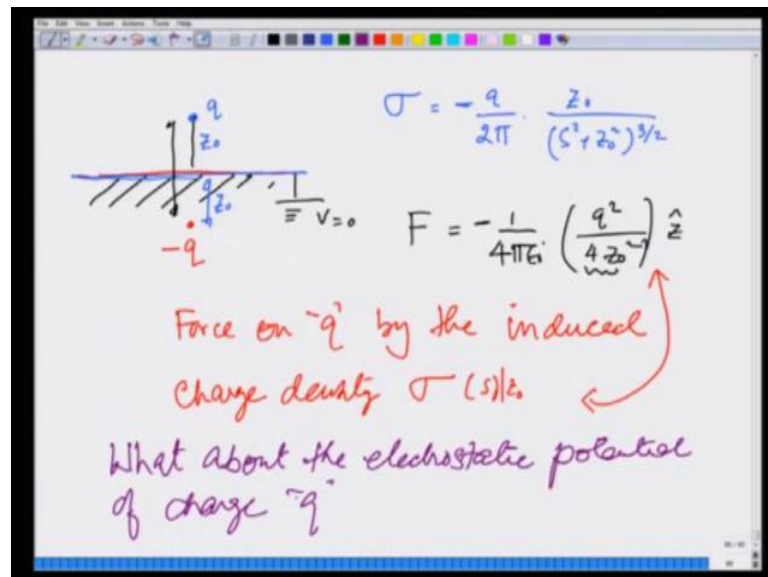 File Edit View Insert Actions Tools Help
q
z₀
z₀
V=0
-q
σ = - q/2π · z₀/(s²+z₀²)^3/2
F = - 1/4πε₀ (q²/4z₀²) ẑ
Force on "q" by the induced
charge density σ(s)|z₀
What about the electrostatic potential
of charge "q"